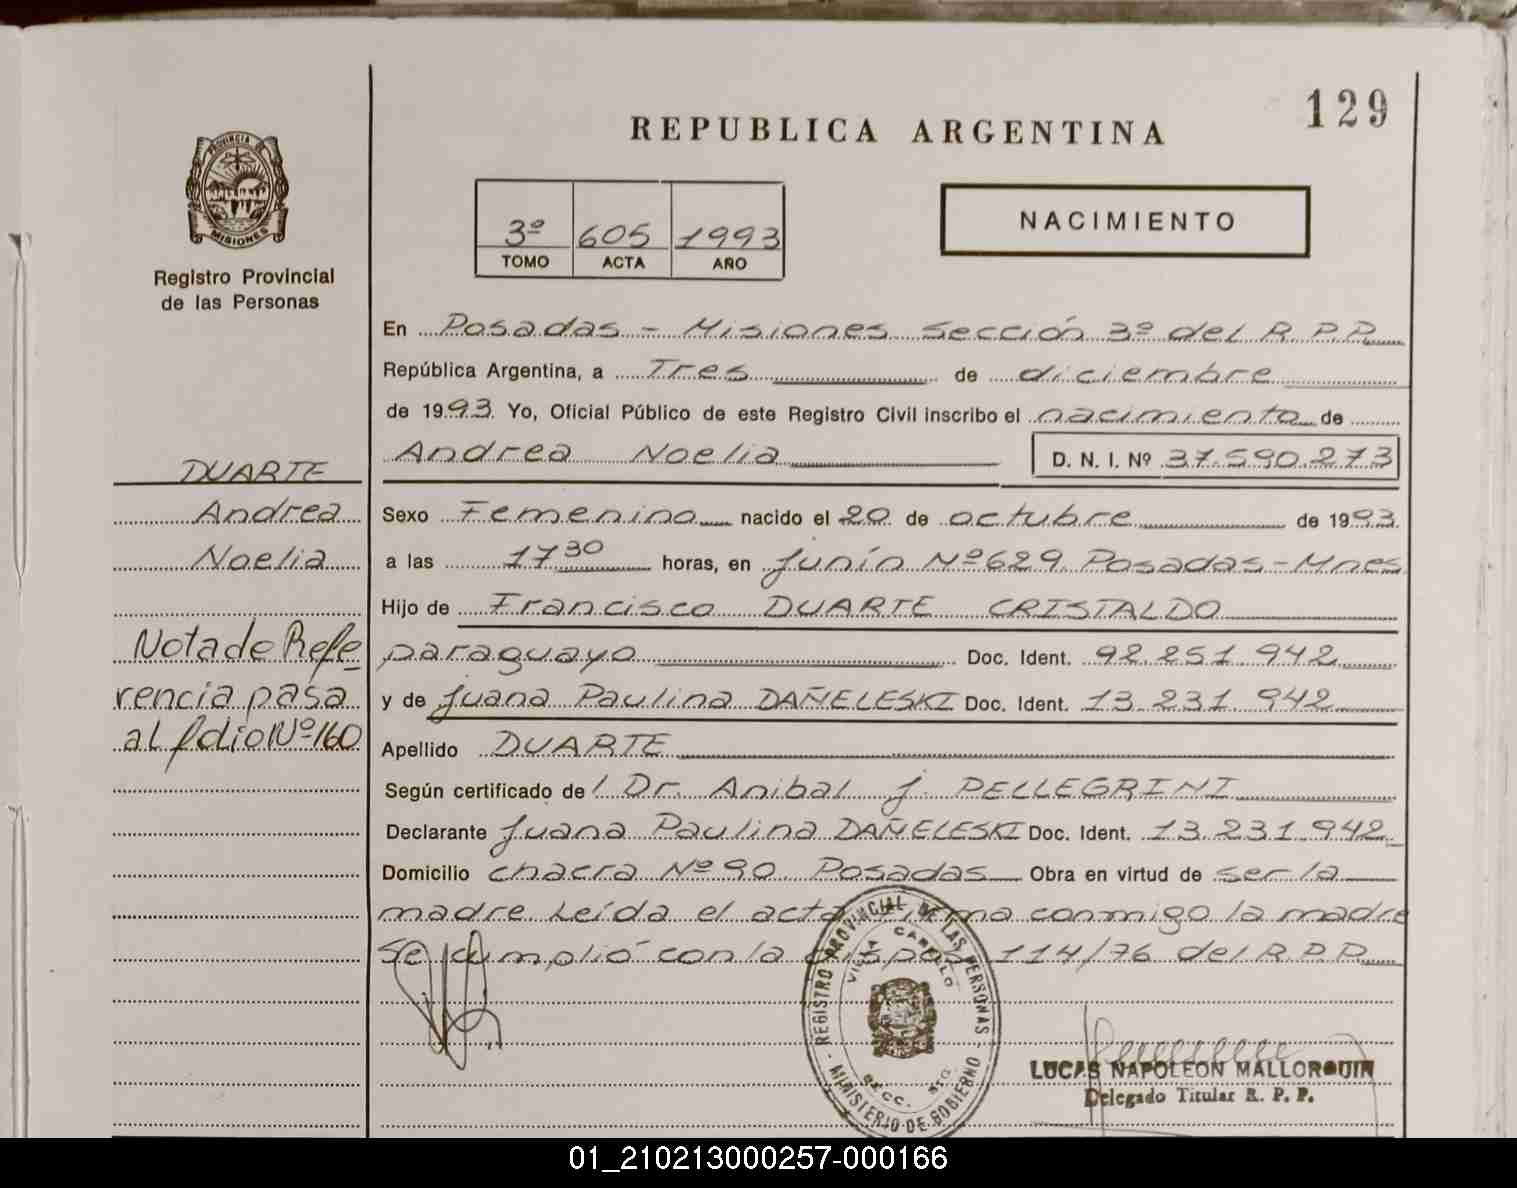 129
REPUBLICA ARGENTINA
PROVINCIA DE
MISIONES
Registro Provincial
de las Personas
3º 605 1993
TOMO ACTA AÑO
NACIMIENTO
En Posadas - Misiones Sección 3º del R.P.P.
República Argentina, a Tres de diciembre
de 1993. Yo, Oficial Público de este Registro Civil inscribo el nacimiento de
Andrea Noelia D. N. I. Nº 37.590.273
DUARTE
Andrea
Noelia
Nota de Refe
rencia pasa
al folio Nº 160
Sexo Femenino nacido el 20 de octubre de 1993.
a las 17 30 horas, en Junín Nº 629 Posadas - Mnes
Hijo de Francisco DUARTE CRISTALDO
paraguayo Doc. Ident. 92.251.942
y de Juana Paulina DAÑELESKI Doc. Ident. 13.231.942
Apellido DUARTE
Según certificado de l Dr. Anibal J. PELLEGRINI
Declarante Juana Paulina DAÑELESKI Doc. Ident. 13.231.942
Domicilio chacra Nº 90 Posadas Obra en virtud de ser la
madre Leída el acta firma conmigo la madre
Se cumplió con la Dispos. 114/76 del R.P.P.
REGISTRO PROVINCIAL DE LAS PERSONAS
- MINISTERIO DE GOBIERNO -
VILLA CABELLO
SECC.
LUCAS NAPOLEON MALLORQUIN
Delegado Titular R. P. P.
01_210213000257-000166